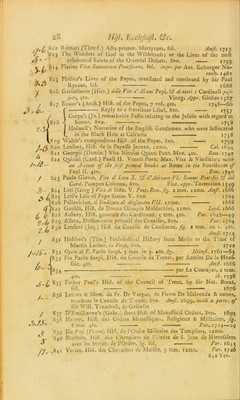 28 Hist. Ecclesiast. &c.
812 Ruinart (Theod.) Acta primor. Martyrum, fol. Amst. 1713
813 The Wonders of God in the Wilderness; or the Lives of the most celebrated Saints of the Oriental Desarts, 8vo. 1755
814 Platina Vitæ Summorum Pontificum, fol. impr. per Ant. Koburger Noremb. 1481
815 Platina's Lives of the Popes, translated and continued by Sir Paul Rycaut, fol. 1688
816 Garimbertus (Hier.) delle Vite d'Alcuni Papi, & di tutti i Cardinali passati, 4to. Vineg. Appr. Giolito 1567
817 Bower's (Arch.) Hist. of the Popes, 7 vol. 4to. 1748—66
Reply to a scurrilous Libel, 8vo. 1757
818 Corpe's (Jn.) remarkable Facts relating to the Jesuits with regard to Bower, 8vo. 1758
Holwell's Narrative of the English Gentlemen who were suffocated in the Black Hole at Calcutta 1758
819 Walch's compendious Hist. of the Popes, 8vo. 1759
820 Lenfant, Hist. de la Papesse Jeanne, 12mo. Col. 1695
821 Georgii (Domin.) Vita Nicolai Quinti Pont. Max. 4to. Romæ 1742
822 Quirini (Card.) Pauli II. Veneti Pontif. Max. Vita & Vindiciæ: with an Account of the first printed Books at Rome in the Pontificate of Paul II. 4to. Rom. 1740
823 Paolo Giovio, Vite di Leon X. & d'Adriano VI. Sommi Pontefici & del Card. Pompeo Colonna, 8vo. Vineg. appr. Torrentino 1549
824 Leti (Greg.) Vita di Sisto V. Pont. Rom. fig. 3 tom. 12mo. Amst. 1686
825 Leti's Life of Pope Sixtus V. fol. 1704
826 Pallavicini, il Sindicato di Alessandro VII. 12mo. 1668
827 Gualdi, Hist. de Donna Olimpia Maldachini, 12mo. Leyd. 1666
828 Aubery, Hist. generale des Cardinaux, 5 tom. 4to. Par. 1642—49
829 Alletz, Dictionnaire portatif des Conciles, 8vo. Par. 1764
830 Lenfant (Jaq.) Hist. du Concile de Constance, fig. 2 tom. en 1. 4to. Amst. 1714
831 Hobbes's (Tho.) Ecclesiastical History from Moses to the Time of Martin Luther, in Verse, 8vo. 1722
832 Opere di F. Paolo Sarpi, 6 tom. in 9. 4to. fig. Helmst. 1761—65
833 Fra Paolo Sarpi, Hist. du Concile de Trente, par Amelot De la Houssaie, 4to. Amst. 1686
834 par Le Courayer, 2 tom. 4to. ib. 1736
835 Father Paul's Hist. of the Council of Trent, by Sir Nat. Brent, fol. 1676
836 Lettres & Mem. de Fr. De Vargas, de Pierre De Malvenda & autres, touchant le Concile de Trente, 8vo. Amst. 1699. avec a lettre of Sir Will. Trumbull, et Gribelin
837 D'Emillianne's (Gabr.) short Hist. of Monastical Orders, 8vo. 1693
838 Helyot, Hist. des Ordres Monastiques, Religieux & Militaires, fig. 8 tom 4to. Par. 1714—19
839 Du Puy (Pierre) Hist. de l'Ordre Militaire des Templiers, 12mo.
840 Boudoin, Hist. des Chevaliers de l'Ordre de S. Jean de Hierusalem avec les Statuts de l'Ordre, fig. fol. Par. 1643
841 Vertot, Hist. des Chevaliers de Malthe, 5 tom. 12mo. Par. 1726
842 Ver-